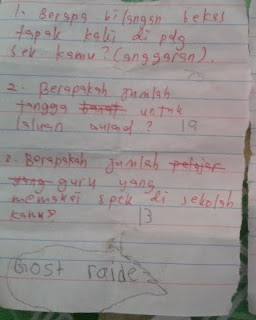 1. Berapa bilangan bekas
tapak kaki di pdg
sek kamu? (anggaran).
2. Berapakah jumlah
tangga banat untuk
laluan murid? 19
3. Berapakah jumlah pelajar
yang guru yang
memakai spek di sekolah
kamu? 13
Gost raide